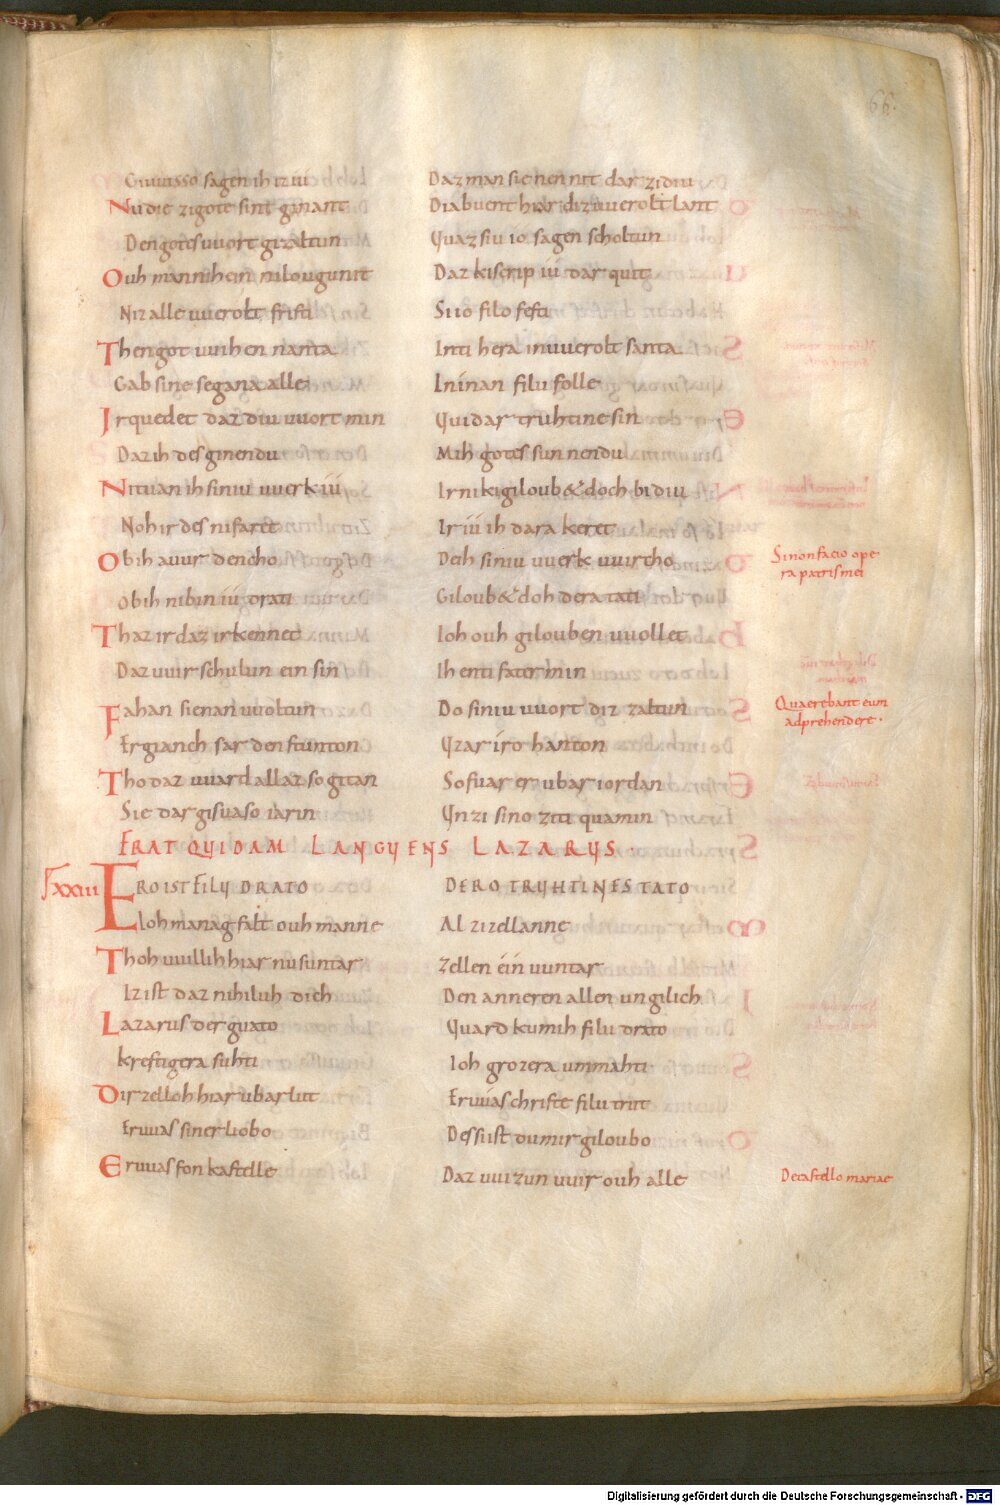 66.
Giuuisso sagen ih iz iu Daz man sie nennit dar zi diu
Nu die zi gote sint ginant Dia buent hiar diz uuerolt lant
Den gotes uuort gizaltun Quaz siu io sagen scholtun
Ouh mannihein nilougunit Daz kiscrip iu dar quit
Niz alle uuerolt fristi Si io filo festi
Then got uuihen nanta Inti hera in uuerolt santa
Gab sine segana alle In inan filu folle
Ir quedet daz diu uuort min Qui dar truhtine sin
Daz ih des ginendu Mih gotes sun nendu
Ni tuan ih siniu uuerk iu Ir ni kigiloub& doch bidiu
Noh ir des ni faret Ir iu ih dara keret
Obih auur dencho Deih siniu uuerk uuircho
Obih nibin iu drati Giloub& doh dera tati
Thaz ir daz irkennet Ioh ouh gilouben uuollet
Daz uuir schulun ein sin Ih enti fater min
Fahan sie nan uuoltun Do siniu uuort diz zaltun
Er gianch sar den stunton Uzar iro hanton
Tho daz uuard allaz so gitan So fuar er ubar iordan
Sie dar gisuaso uarin Unzi sino ziti quamin
Si non facio ope
ra patris mei
Quaerebant eum
adprehendere.
ERAT QUIDAM LANGUENS LAZARUS.
XXIII ERO IST FILU DRATO DERO TRUHTINES TATO
Eloh managfalt ouh manne Al zi zellanne
Thoh uuillih hiar nu suntar Zellen ein uuntar
Iz ist daz nihiluh dich Den anneren allen ungilich
Lazarus der guato Quard kumih filu drato
kreftigera suhti Ioh grozera unmahti
Dir zelloh hiar ubar lut Er uuas christe filu trut
Er uuas siner liobo Des sust du mir giloubo
Er uuas fon kastelle Daz uuizun uuir ouh alle
De castello mariae
Digitalisierung gefördert durch die Deutsche Forschungsgemeinschaft - DFG